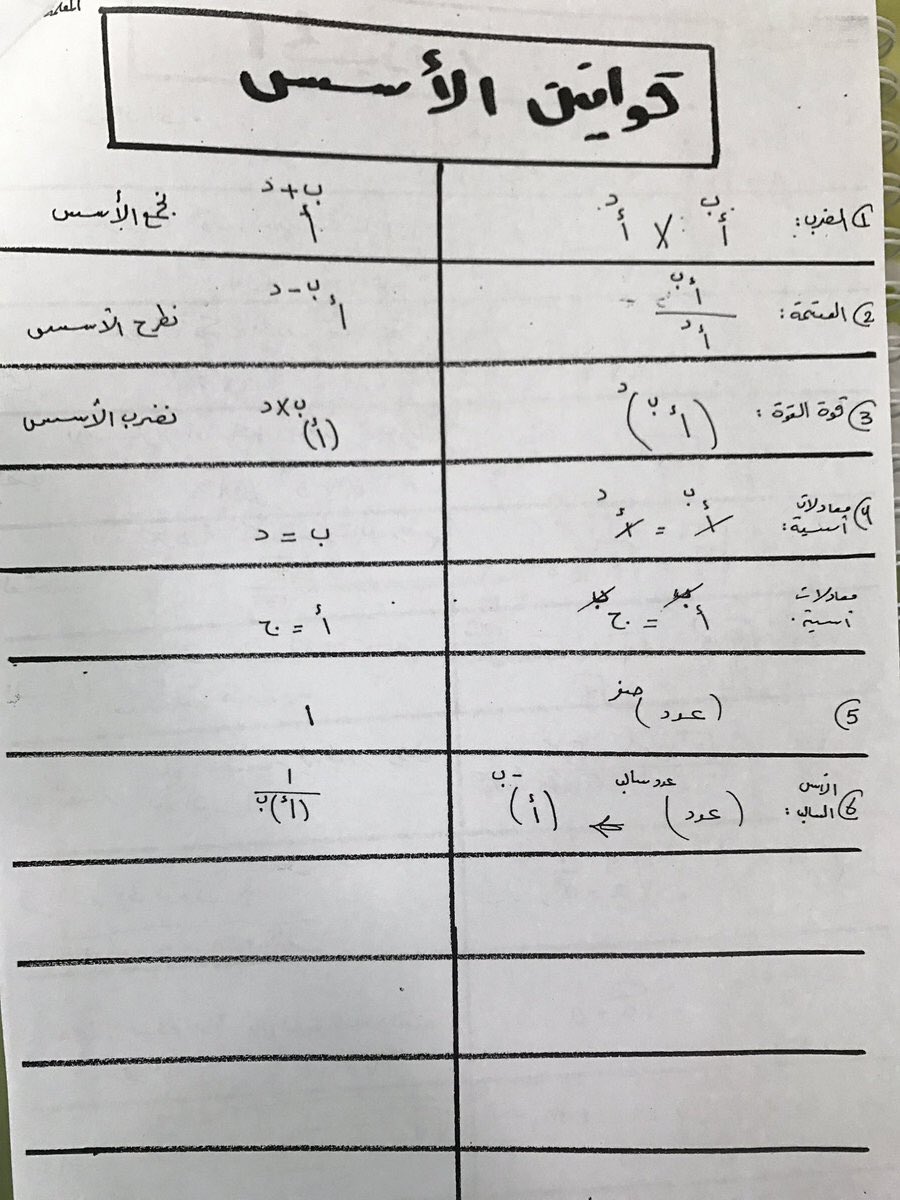 المعلمة
قوانين الأسس
① الضرب: أ^ب × أ^د | أ^(ب+د) نجمع الأسس
② القسمة: أ^ب / أ^د | أ^(ب-د) نطرح الأسس
③ قوة القوة: (أ^ب)^د | (أ)^(ب×د) نضرب الأسس
④ معادلات أسية: أ^ب = أ^د | ب = د
معادلات أسية: أ^ب = ج^ب | أ = ج
⑤ (عدد)^صفر | ١
⑥ الأس السالب: (عدد)^عدد سالب ⇐ (أ)^-ب | ١ / (أ)^ب